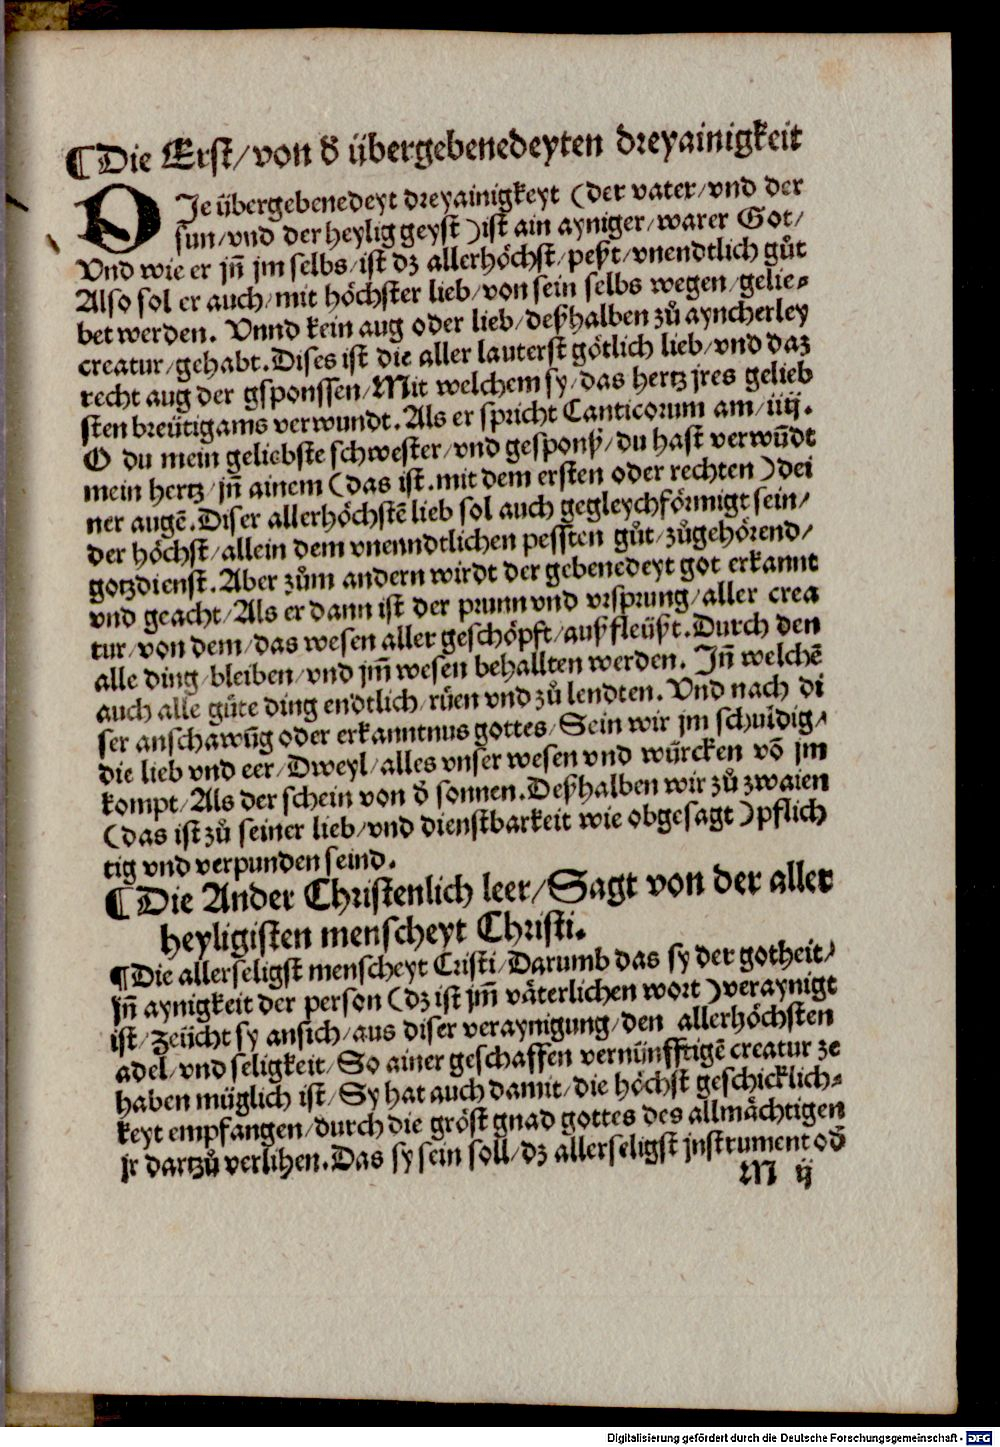 ¶Die Erst/von d̄ übergebenedeyten dreyainigkeit
DJe übergebenedeyt dreyainigkeyt (der vater/vnd der
sun/vnd der heylig geyst) ist ain ayniger/warer Got/
Vnd wie er jn̄ jm selbs/ist dz allerhöchst/peßt/vnendtlich gůt
Also sol er auch/mit höchster lieb/von sein selbs wegen/gelie-
bet werden. Vnnd kein aug oder lieb/deßhalben zů ayncherley
creatur/gehabt. Dises ist die aller lauterst götlich lieb/vnd daz
recht aug der gsponssen/Mit welchem sy/das hertz jres gelieb
sten breütigams verwundt. Als er spricht Canticorum am/iiij.
O du mein geliebste schwester/vnd gesponß/du hast verwūdt
mein hertz/jn̄ ainem (das ist.mit dem ersten oder rechten) dei
ner augē. Diser allerhöchstē lieb sol auch gegleychförmigt sein/
der höchst/allein dem vnenndtlichen pessten gůt/zůgehörend/
gotzdienst. Aber zům andern wirdt der gebenedeyt got erkannt
vnd geacht/Als er dann ist der prunn vnd vrsprung/aller crea
tur/von dem/das wesen aller geschöpft/außfleüßt. Durch den
alle ding/bleiben/vnd jm̄ wesen behallten werden. Jn̄ welchē
auch alle gůte ding endtlich/růen vnd zů lendten. Vnd nach di
ser anschawūg oder erkanntnus gottes/Sein wir jm schuldig/
die lieb vnd eer/Dweyl/alles vnser wesen vnd würcken vō jm
kompt/Als der schein von d̄ sonnen. Deßhalben wir zů zwaien
(das ist zů seiner lieb/vnd dienstbarkeit wie obgesagt) pflich
tig vnd verpunden seind.
¶Die Ander Christenlich leer/Sagt von der aller
heyligisten menscheyt Christi.
¶Die allerseligst menscheyt Cristi/Darumb das sy der gotheit/
jn̄ aynigkeit der person (dz ist jm̄ väterlichen wort) veraynigt
ist/Zeücht sy ansich/aus diser veraynigung/den allerhöchsten
adel/vnd seligkeit/So ainer geschaffen vernünfftigē creatur ze
haben müglich ist/Sy hat auch damit/die höchst geschicklich-
keyt empfangen/durch die gröst gnad gottes des allmächtigen
jr dartzů verlihen. Das sy sein soll/dz allerseligst jnstrument od̄
M ij
Digitalisierung gefördert durch die Deutsche Forschungsgemeinschaft - DFG